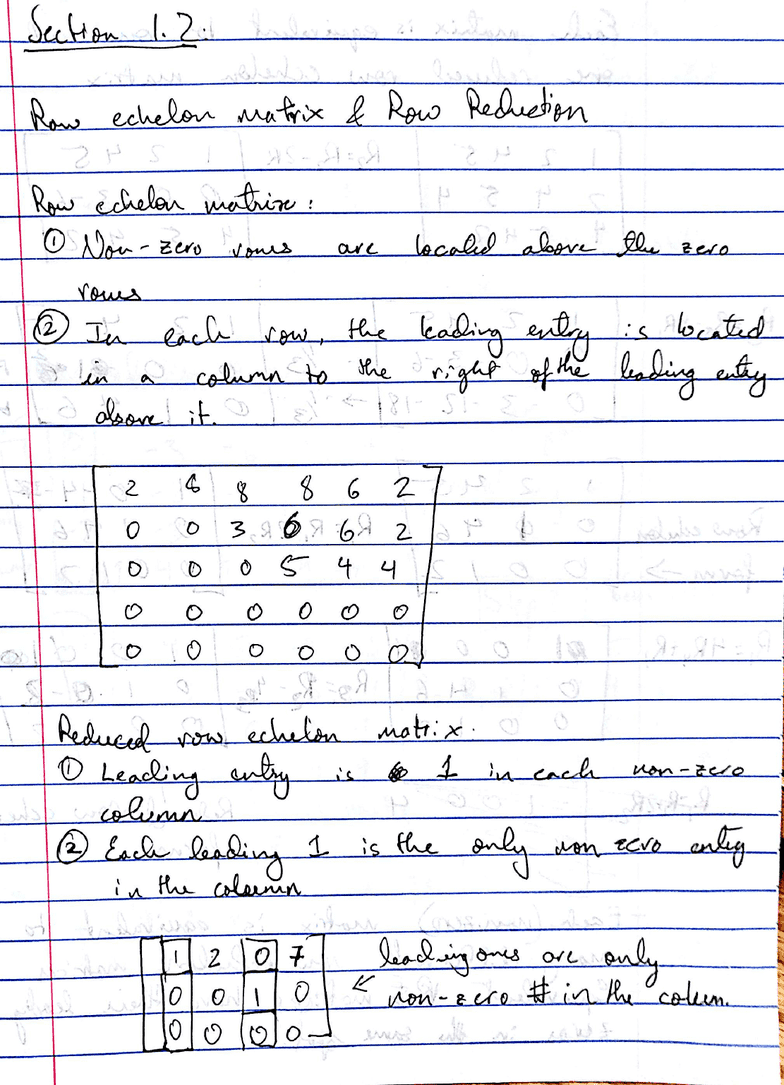 Section 1.2:
Row echelon matrix & Row Reduction
Row echelon matrix:
① Non-zero rows are located above the zero
rows
② In each row, the leading entry is located
in a column to the right of the leading entry
above it.
2 8 8 6 2
0 0 3 6 6 2
0 0 0 5 4 4
0 0 0 0 0 0
0 0 0 0 0 0
Reduced row echelon matrix.
① Leading entry is 1 in each non-zero
column
② Each leading 1 is the only non zero entry
in the column
1 2 0 7 leading ones are only
0 0 1 0 ← non-zero # in the colum.
0 0 0 0